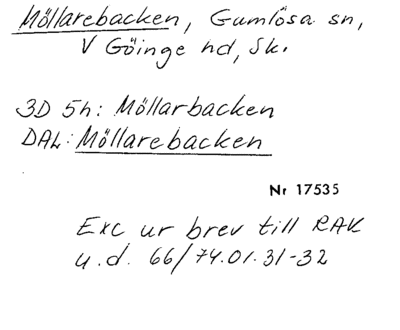 Möllarebacken, Gumlösa sn,
V Göinge hd, Sk.
3D 5h: Möllarbacken
DAL: Möllarebacken
Nr 17535
Exc ur brev till RAK
u.d. 66/74.01.31-32